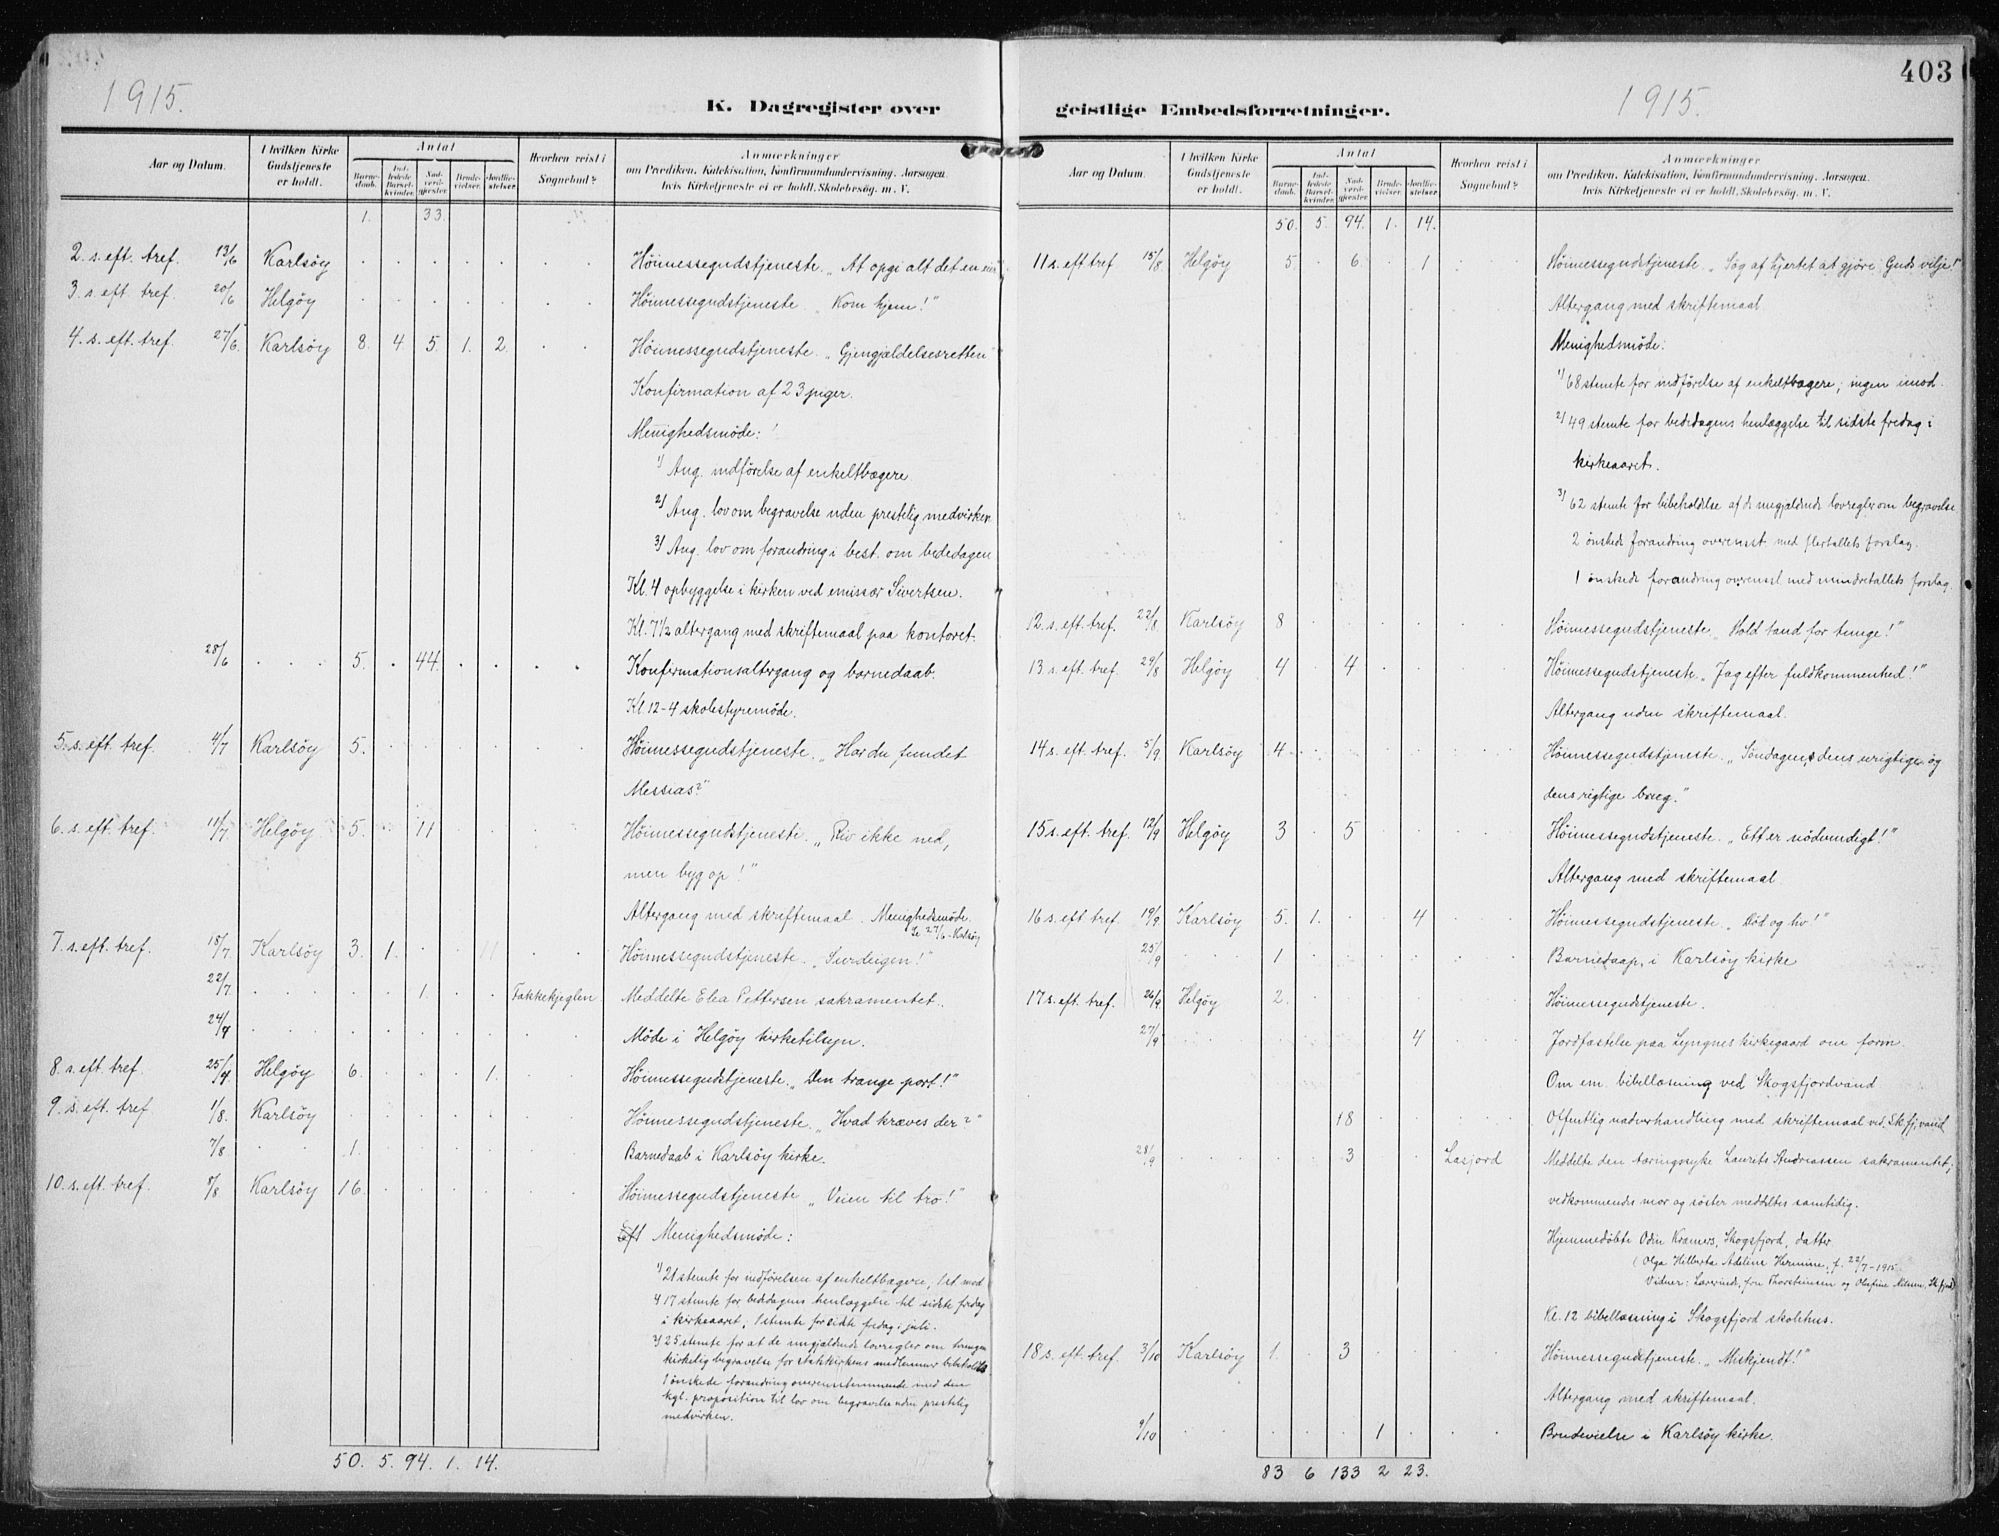 403
1915.
1915.
K. Dagregister over
geistlige Embedsforretninger.
Aar og Datum. I hvilken Kirke Gudstjeneste er holdt. Antal Barnedaab. Indledede Barselkvinder. Nadverdgjester Brudevielser. Jordfæstelser. Hvorhen reist i Sognebud? Anmærkninger om Prædiken. Katekisation, Konfirmandundervisning. Aarsagen, hvis Kirketjeneste ei er holdt. Skolebesøg. m. V.
1. 33.
2. s. eft. tref. 13/6 Karlsöy Höimessegudstjeneste. „At opgi alt det en eier"
3. s. eft. tref 20/6 Helgöy Höimessegudstjeneste „Kom hjem!"
4. s. eft. tref. 27/6 Karlsöy 8. 4 5. 1. 2. Höimessegudstjeneste. „Gjengjældelsesretten"
Konfirmation af 23 piger.
Menighedsmöde:
1) Ang. indförelse af enkeltbægere
2) Ang. lov om begravelse uden prestelig medvirken
3) Ang. lov om forandring i best. om bededagen
Kl. 4 opbyggelse i kirken ved emissær Sivertsen.
Kl. 7 1/2 altergang med skriftemaal paa kontoret.
28/6 5. 44. Konfirmationsaltergang og barnedaab.
Kl 12-4 skolestyremöde.
5. s. eft. tref. 4/7 Karlsöy 5. Höimessegudstjeneste. „Har du fundet
Messias?"
6. s. eft. tref. 11/7 Helgöy 5. 11 Höimessegudstjeneste. „Riv ikke ned,
men byg op!"
Altergang med skriftemaal. Menighedsmöde.
Se 27/6 - Karlsöy
7. s. eft. tref. 18/7 Karlsöy 3. 1. Höimessegudstjeneste. „Surdeigen!"
22/7 1. Fakkekjeglen Meddelte Elea Pettersen sakramentet.
24/7 Möde i Helgöy kirketilsyn.
8. s. eft. tref. 25/7 Helgöy 6. 1. Höimessegudstjeneste. „Den trange port!"
9. s. eft. tref 1/8. Karlsöy Höimessegudstjeneste. „Hvad kræves der?"
7/8 1. Barnedaab i Karlsöy kirke.
10. s. eft. tref. 8/8 Karlsöy 16. Höimessegudstjeneste „Veien til tro!"
Menighedsmöde:
1) 21 stemte for indförelsen af enkeltbægere, 1 st. mod
17 stemte for beddagens henlæggelse til sidste fredag
i kirkeaaret, 1 stemte for sidte fredag i juli.
3) 25 stemte for at de nugjældende lovregler om tvungen
kirkelig begravelse for statskirkens medlemmer bibeholdes
1 önskede forandring overensstemmende med den
kgl. proposition til lov om begravelse uden prestelig
medvirken.
50. 5. 94. 1. 14.
Aar og Datum. I hvilken Kirke Gudstjeneste er holdt. Antal Barnedaab. Indledede Barselkvinder. Nadverdgjester Brudevielser. Jordfæstelser. Hvorhen reist i Sognebud? Anmærkninger om Prædiken. Katekisation, Konfirmandundervisning. Aarsagen, hvis Kirketjeneste ei er holdt. Skolebesøg. m. V.
50. 5. 94. 1. 14.
11 s. eft tref 15/8 Helgöy 5. 6. 1 Höimessegudstjeneste „Søg af hjertet at gjöre Guds vilje!"
Altergang med skriftemaal
Menighedsmöde:
1) 68 stemte for indförelse af enkeltbægere; ingen imod.
2) 49 stemte for bededagens henlæggelse til sidste fredag i
kirkeaaret.
3) 62 stemte for bibeholdelse af de nugjældende lovregler om begravelse
2 önskede forandring overensst med flertallets forslag.
1 önskede forandring overensst med mindretallets forslag.
12. s. eft. tref. 22/8 Karlsöy 8 Höimessegudstjeneste „Hold tand for tunge!"
13. s. eft. tref. 29/8 Helgöy 4 4 Höimessegudstjeneste. „Jag efter fuldkommenhed!"
Altergang uden skriftemaal.
14 s. eft. tref. 5/9 Karlsöy 4 Höimessegudstjeneste. „Söndagen, dens urigtige og
dens rigtige brug."
15 s. eft. tref. 12/9 Helgöy 3 5 Höimessegudstjeneste. „Ett er nödvendigt!"
Altergang med skriftemaal
16 s. eft tref 19/9 Karlsöy 5. 1. 4 Höimessegudstjeneste. „Död og liv!"
25/9 1 Barnedaap i Karlsöy kirke
17 s. eft. tref. 26/9 Helgöy 2. Höimessegudstjeneste.
27/9 4 Jordfæstelse paa Lyngnes kirkegaard om form.
Om em. bibellæsning ved Skogsfjordvand
18 Offentlig nadverhandling med skriftemaal ved Skfj.vand
28/9 3 Lasjord Meddelte den tæringssyke Laurits Andreassen sakramentet;
vedkommendes mor og söster meddeltes samtidig.
Hjemmedöbte Odin Kramers, Skogsfjord, datter
(Olga Hilberta Adeline Hermine, f. 22/7 - 1915.
Vidner: Lærerinde, frn Thorsteinsen og Olufine Nilsen, Skfjord)
Kl. 12 bibellæsning i Skogsfjord skolehus.
18 s. eft. tref. 3/10 Karlsöy 1. 3 Höimessegudstjeneste. „Miskjendt!"
Altergang med skriftemaal.
9/10 1 Brudevielse i Karlsöy kirke.
83 6 133 2 23.